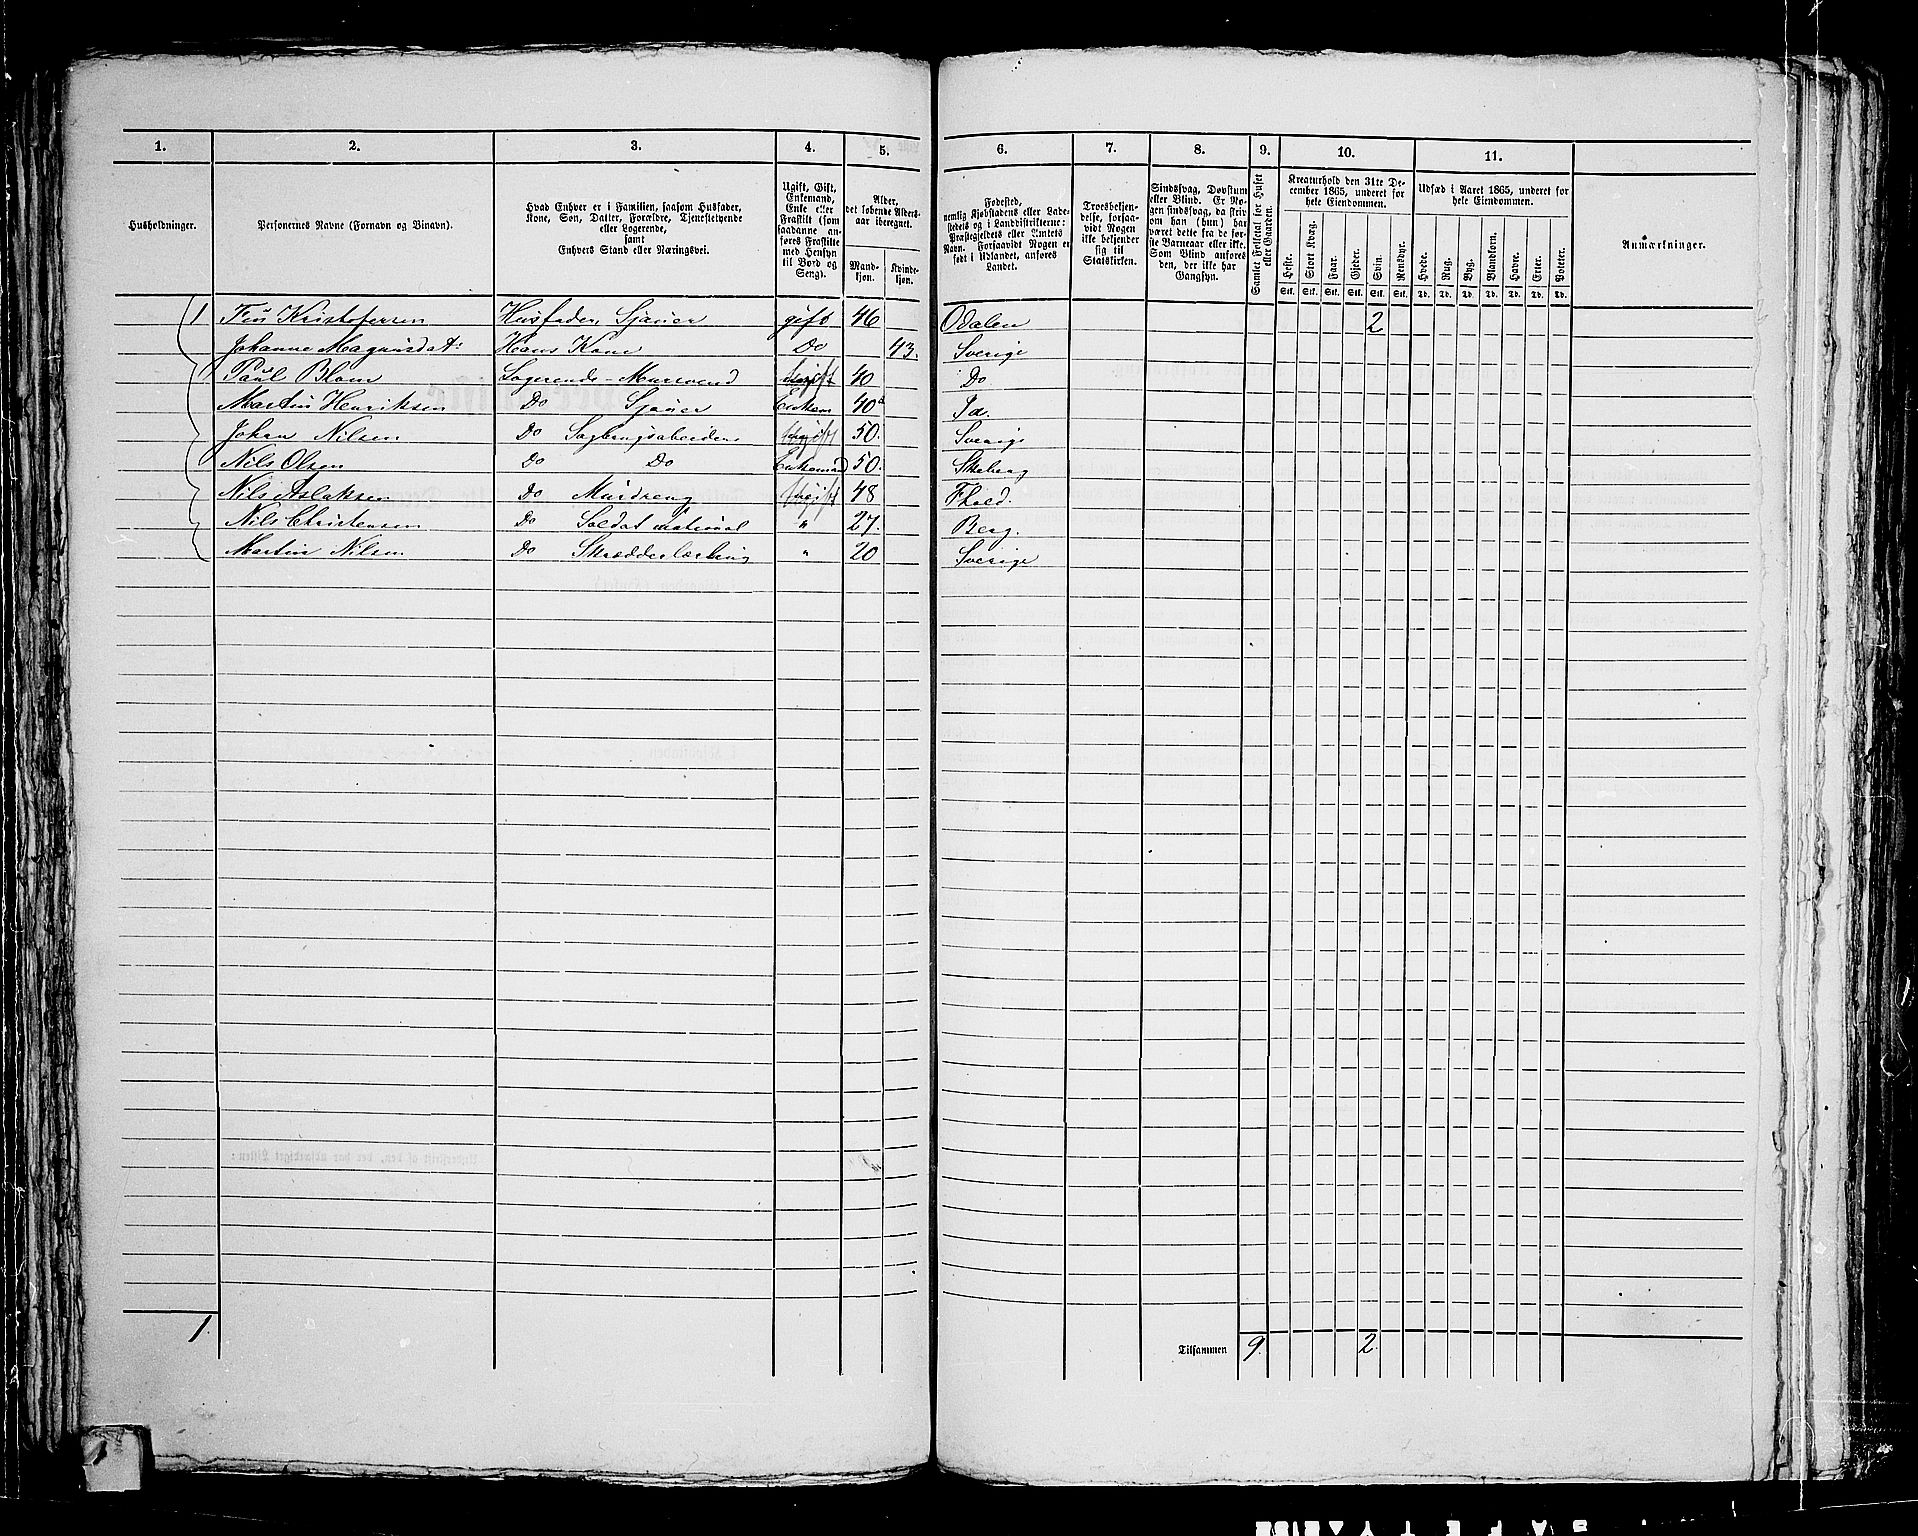 1. 2. 3. 4. 5. 6. 7. 8. 9. 10. 11.
Husholdninger.
Personernes Navne (Fornavn og Binavn).
Hvad Enhver er i Familien, saasom Husfader,
Kone, Søn, Datter, Forældre, Tjenestetyende
eller Logerende,
samt
Enhvers Stand eller Næringsvei.
Ugift, Gift,
Enkemand,
Enke eller
Fraskilt (som
saadanne an-
føres Fraskilte
med Hensyn
til Bord og
Seng).
Alder,
det løbende Alders-
aar iberegnet.
Mand-
kjøn.
Kvinde-
kjøn.
Fødested,
nemlig Kjøbstadens eller Lade-
stedets og i Landdistrikterne:
Præstegjeldets eller Amtets
Navn. Forsaavidt Nogen er
født i Udlandet, anføres
Landet.
Troesbekjen-
delse, forsaa-
vidt Nogen
ikke bekjender
sig til
Statskirken.
Sindssvag, Døvstum
eller Blind. Er No-
gen sindssvag, da skriv
om han (hun) har
været dette fra de før-
ste Barneaar eller ikke.
Som Blind anføres
den, der ikke har
Gangsyn.
Samlet Folketal for Huset
eller Gaarden.
Kreaturhold den 31te De-
cember 1865, underet for
hele Eiendommen.
Heste. Stort Kvæg. Faar. Gjeder. Svin. Rensdyr.
Stk. Stk. Stk. Stk. Stk. Stk.
Udsæd i Aaret 1865, underet for
hele Eiendommen.
Hvede. Rug. Byg. Blandkorn. Havre. Erter. Poteter.
Td. Td. Td. Td. Td. Td. Td.
Anmærkninger.
1 Kristofersen Husfader, Sjauer gift 46 Odalen 2
Johanne Magnusdat: Hans Kone Do 43. Sverige
Paul Blom Logerende - Mursvend Ugift 40 Do
Martin Henriksen Do Sjauer Enkem 40
Johan Nilsen Do Sagbrugsarbeider Ugift 50. Sverige
Nils Olsen Do Do Enkemand 50. Skeberg
Nils Aslaksen Do Murdreng Ugift 48
Nils Christensen Do Soldat national " 27. Berg.
Martin Nilsen Do Skrædderlærling " 20 Sverige
1.
Tilsammen 9. 2.